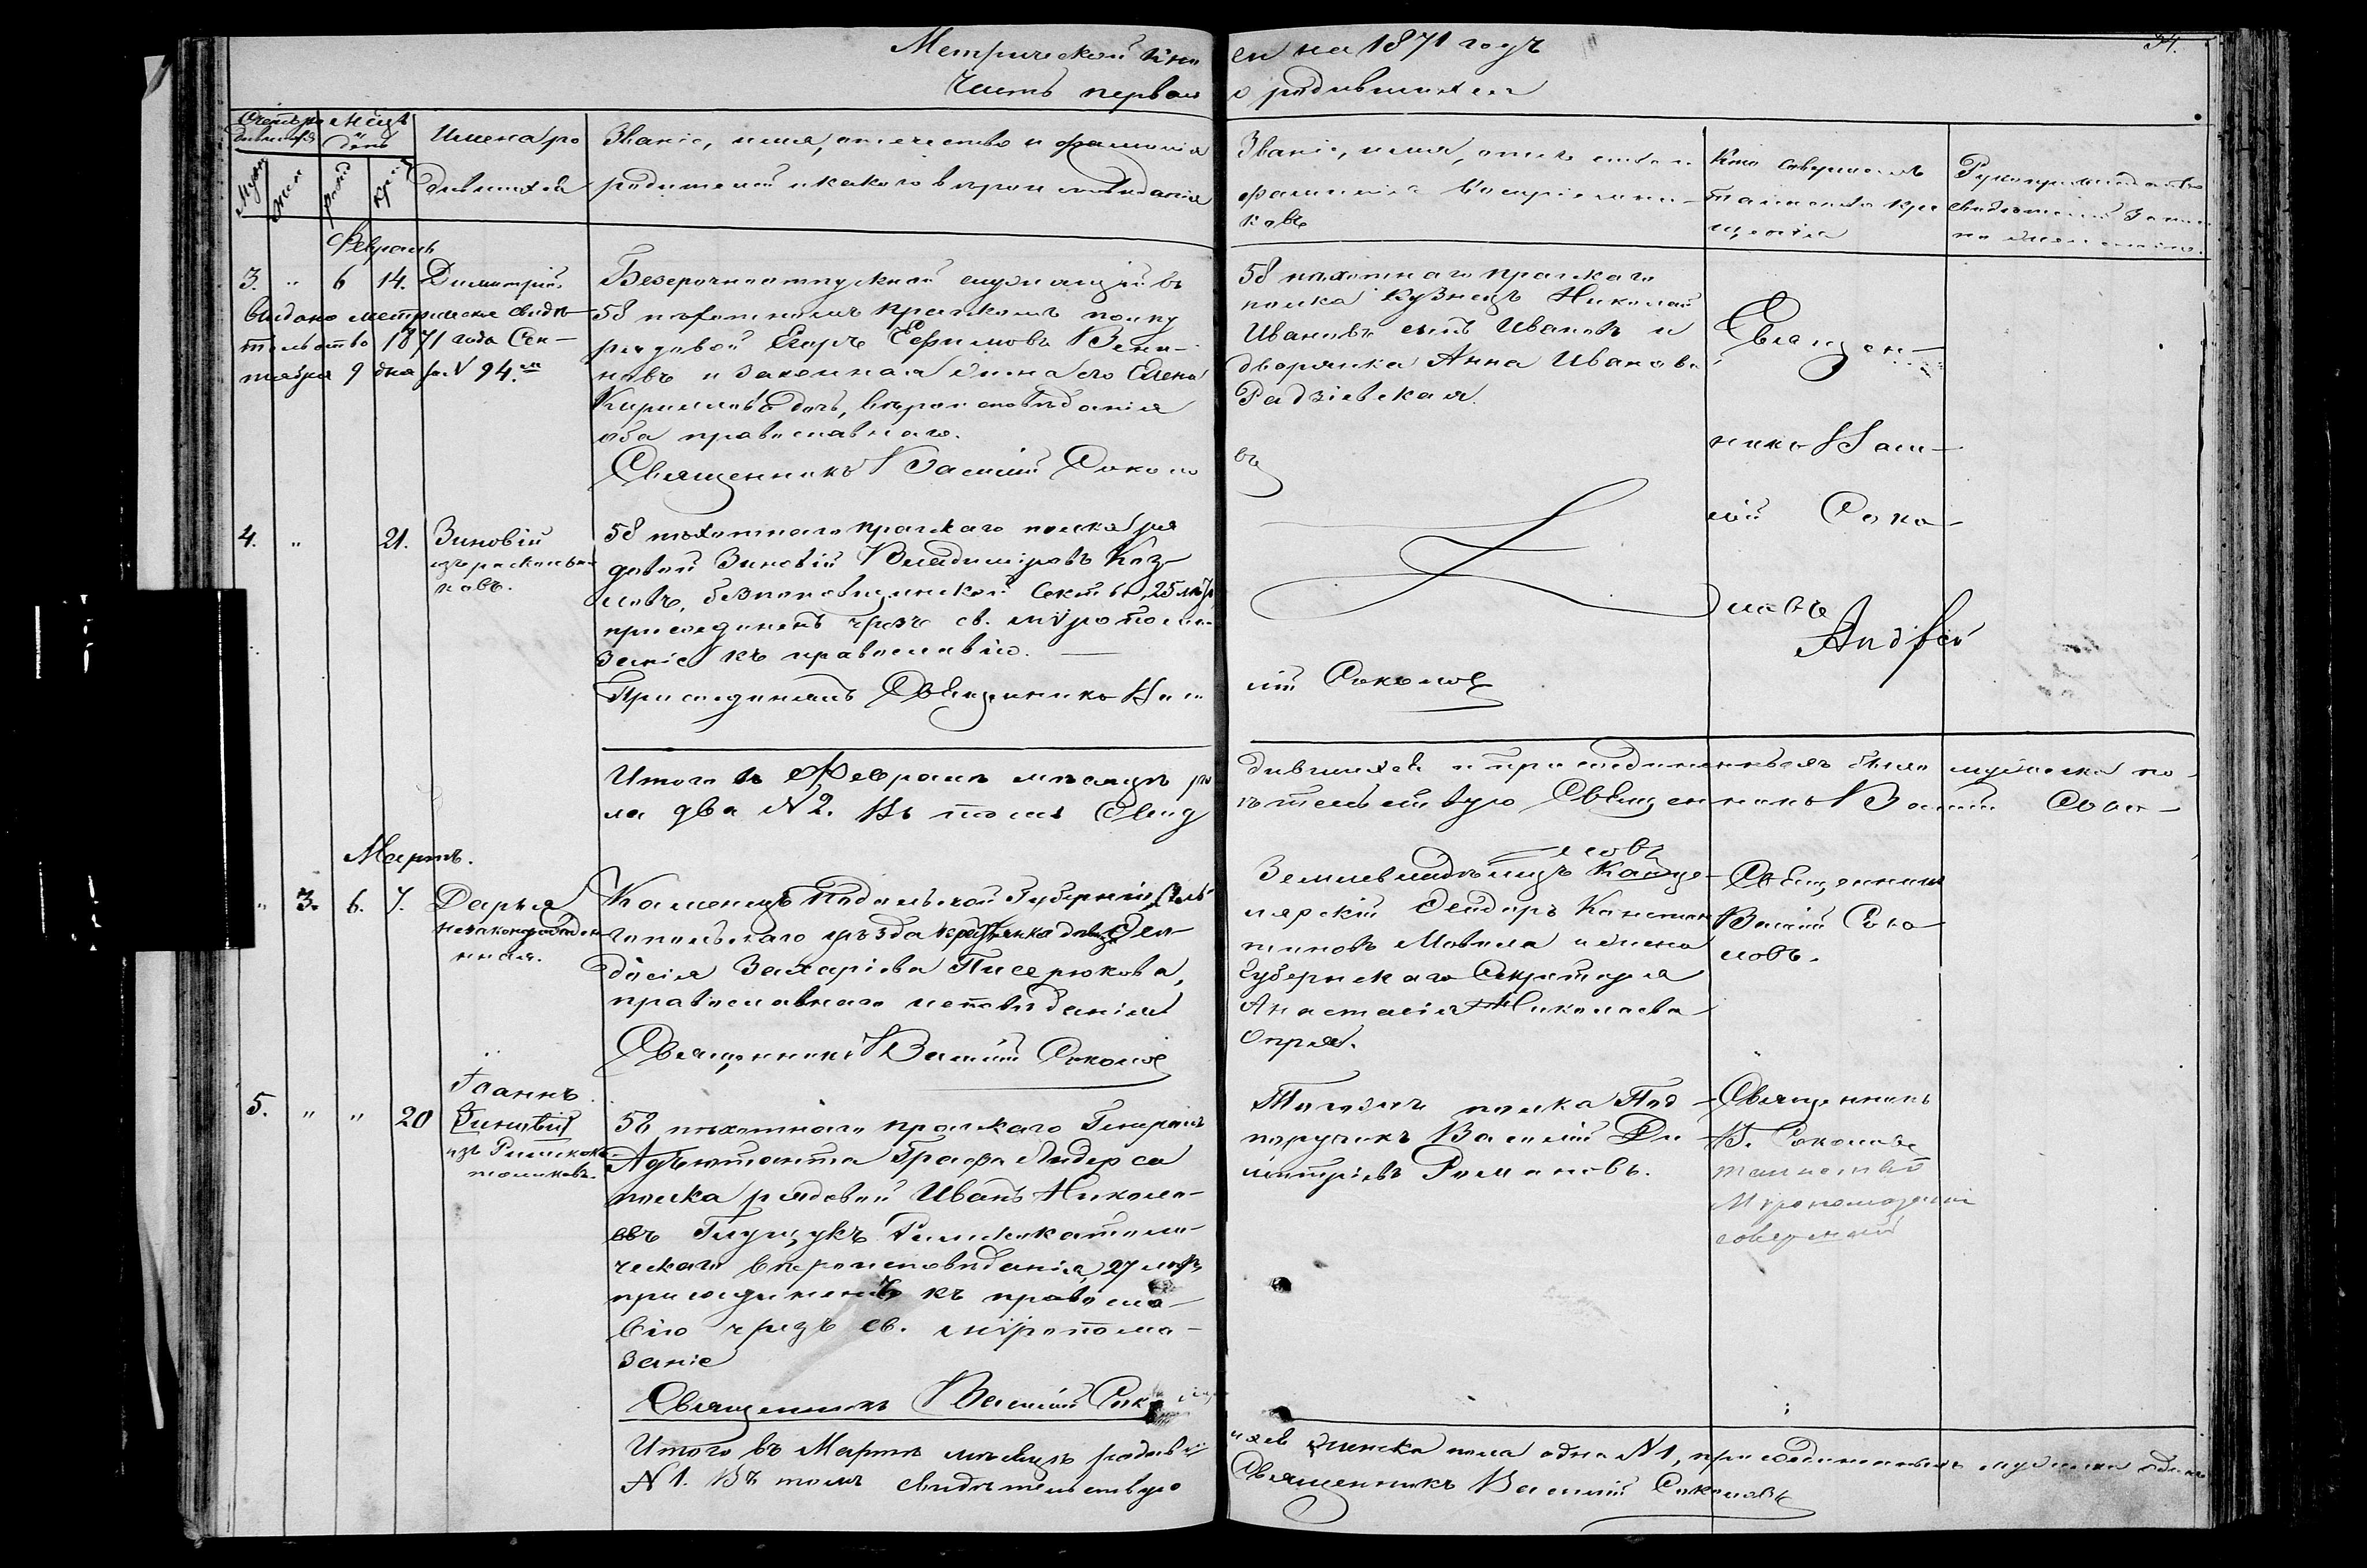 Метрической кни
ги на 1871 годъ
34.
Часть первая
о родившихся
Счетъ родившихся
Мѣсяцъ и день
Имена родившихся
Званіе, имя, отчество и фамилія
родителей и какого вѣроисповѣданія
Званіе, имя, отчество и
фамилія воспріемни-
ковъ
Кто совершалъ
таинство кре
щенія
Рукоприкладство
свидѣтелей записи
по желанію
Муж
Жен
рожд
крещ
Февраль
3. " 6 14. Димитрій
выдано метрическое свидѣ-
тельство 1871 года Сен-
тября 9 дня за N 94.
Безсрочноотпускной служащій въ
58 пѣхотномъ Пражскомъ полку
рядовой Егоръ Ефимовъ
и законная жена его Елена
Кириллова дочь, вѣроисповѣданія
оба православнаго.
Священникъ Василій Соколо
въ
58 пѣхотнаго Пражскаго
полка кузнецъ Николай
Ивановъ сынъ Ивановъ и
дворянка Анна Иванова
Радзіевская.
Священ-
никъ Васи-
лій Соко-
ловъ
4. " 21. Зиновій
изъ раскольни
ковъ.
58 пѣхотнаго Пражскаго полка ря
довой Зиновій Владиміровъ Коз-
ловъ, безпоповщинской секты, 25 лѣтъ,
присоединенъ чрезъ св. мѵропома-
заніе къ православію.
Присоединялъ Священникъ Васи
лій Соколовъ
Андрей
Итого въ Февралѣ мѣсяцѣ ро
дившихся и присоединенныхъ было мужеска по-
ла два N 2. Въ томъ свид
ѣтельствую Священникъ Василій Соко-
ловъ
Мартъ.
" 3. 6. 7. Дарья
незаконнорожден
нная.
Каменецъ Подольской Губерніи,
гопольскаго уѣзда крестьянка дѣвица Фео-
досія Захаріева Писарюкова,
православнаго исповѣданія
Священникъ Василій Соколовъ
Землевладѣлецъ Канце-
лярскій Феодоръ Констан
тиновъ Мовила и жена
Губернскаго Секретаря
Анастасія Николаева
Опря.
Священникъ
Василій Соко-
ловъ.
5. " " 20
Іоаннъ
Зиновій
изъ Римскока
толиковъ.
58 пѣхотнаго Пражскаго Генералъ
Адъютанта Графа Лидерса
полка рядовой Иванъ Никола-
евъ Глущукъ Римскокатоли-
ческаго вѣроисповѣданія, 27 лѣтъ,
присоединенъ къ правосла-
вію чрезъ св. мѵропома-
заніе
Священникъ Василій Соколовъ
Тогожъ полка Под-
поручикъ Василій Ди-
митріевъ Романовъ.
Священникъ
В. Соколовъ
таинство
Мѵропомазанія
совершилъ
Итого въ Мартѣ мѣсяцѣ родив
шихся женска пола одна N 1, присоединенныхъ мужеска одинъ
N 1. Въ томъ свидѣтельствую
Священникъ Василій Соколовъ